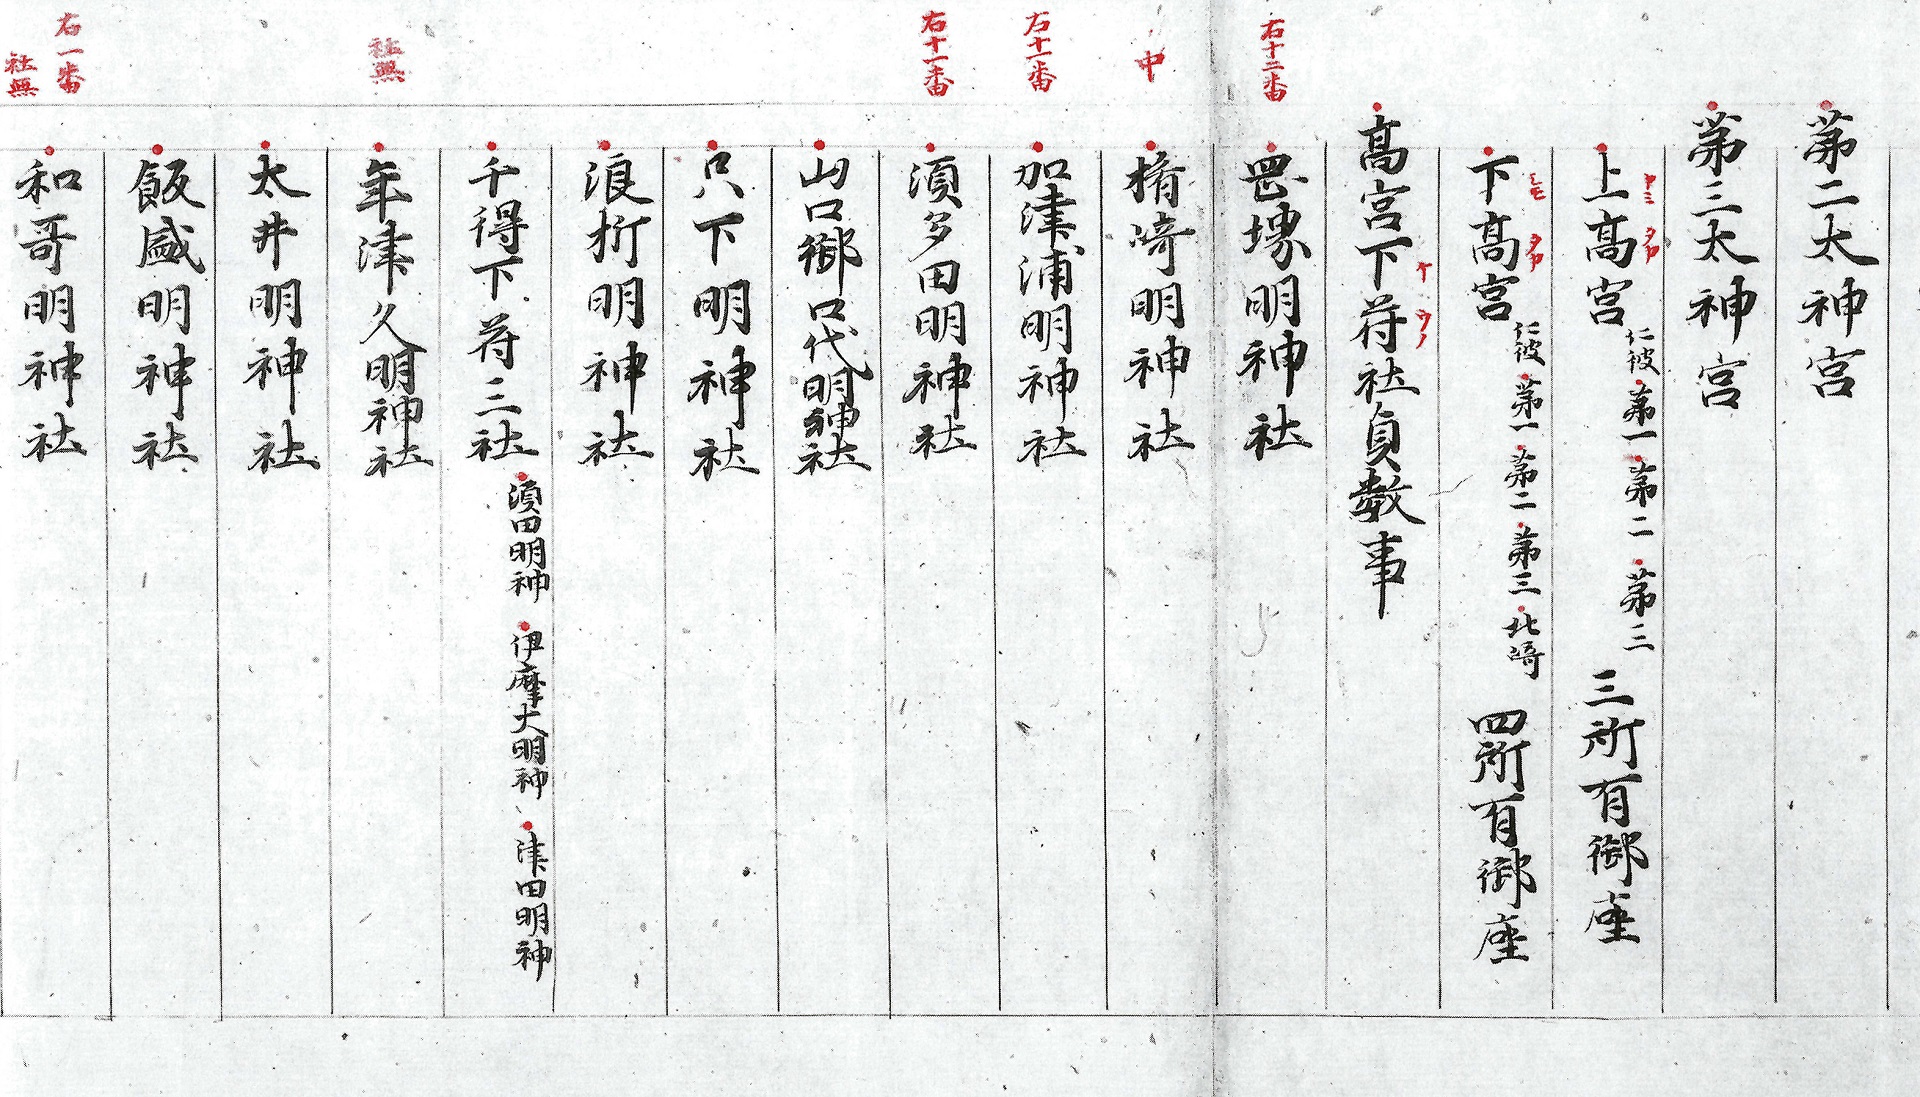 第二太神宮
第三太神宮
上高宮 仁彼 第一 第二 第三 三所有御座
下高宮 仁彼 第一 第二 第三 北﨑 四所有御座
高宮下符社員数事
右十二番
罡堺明神社
中
楕﨑明神社
右十一番
加津浦明神社
右十一番
須多田明神社
山口御口代明神社
只下明神社
浪折明神社
千得下符三社 須田明神 伊摩大明神 津田明神
社無
年津久明神社
太井明神社
飯盛明神社
右一番
社無
和哥明神社